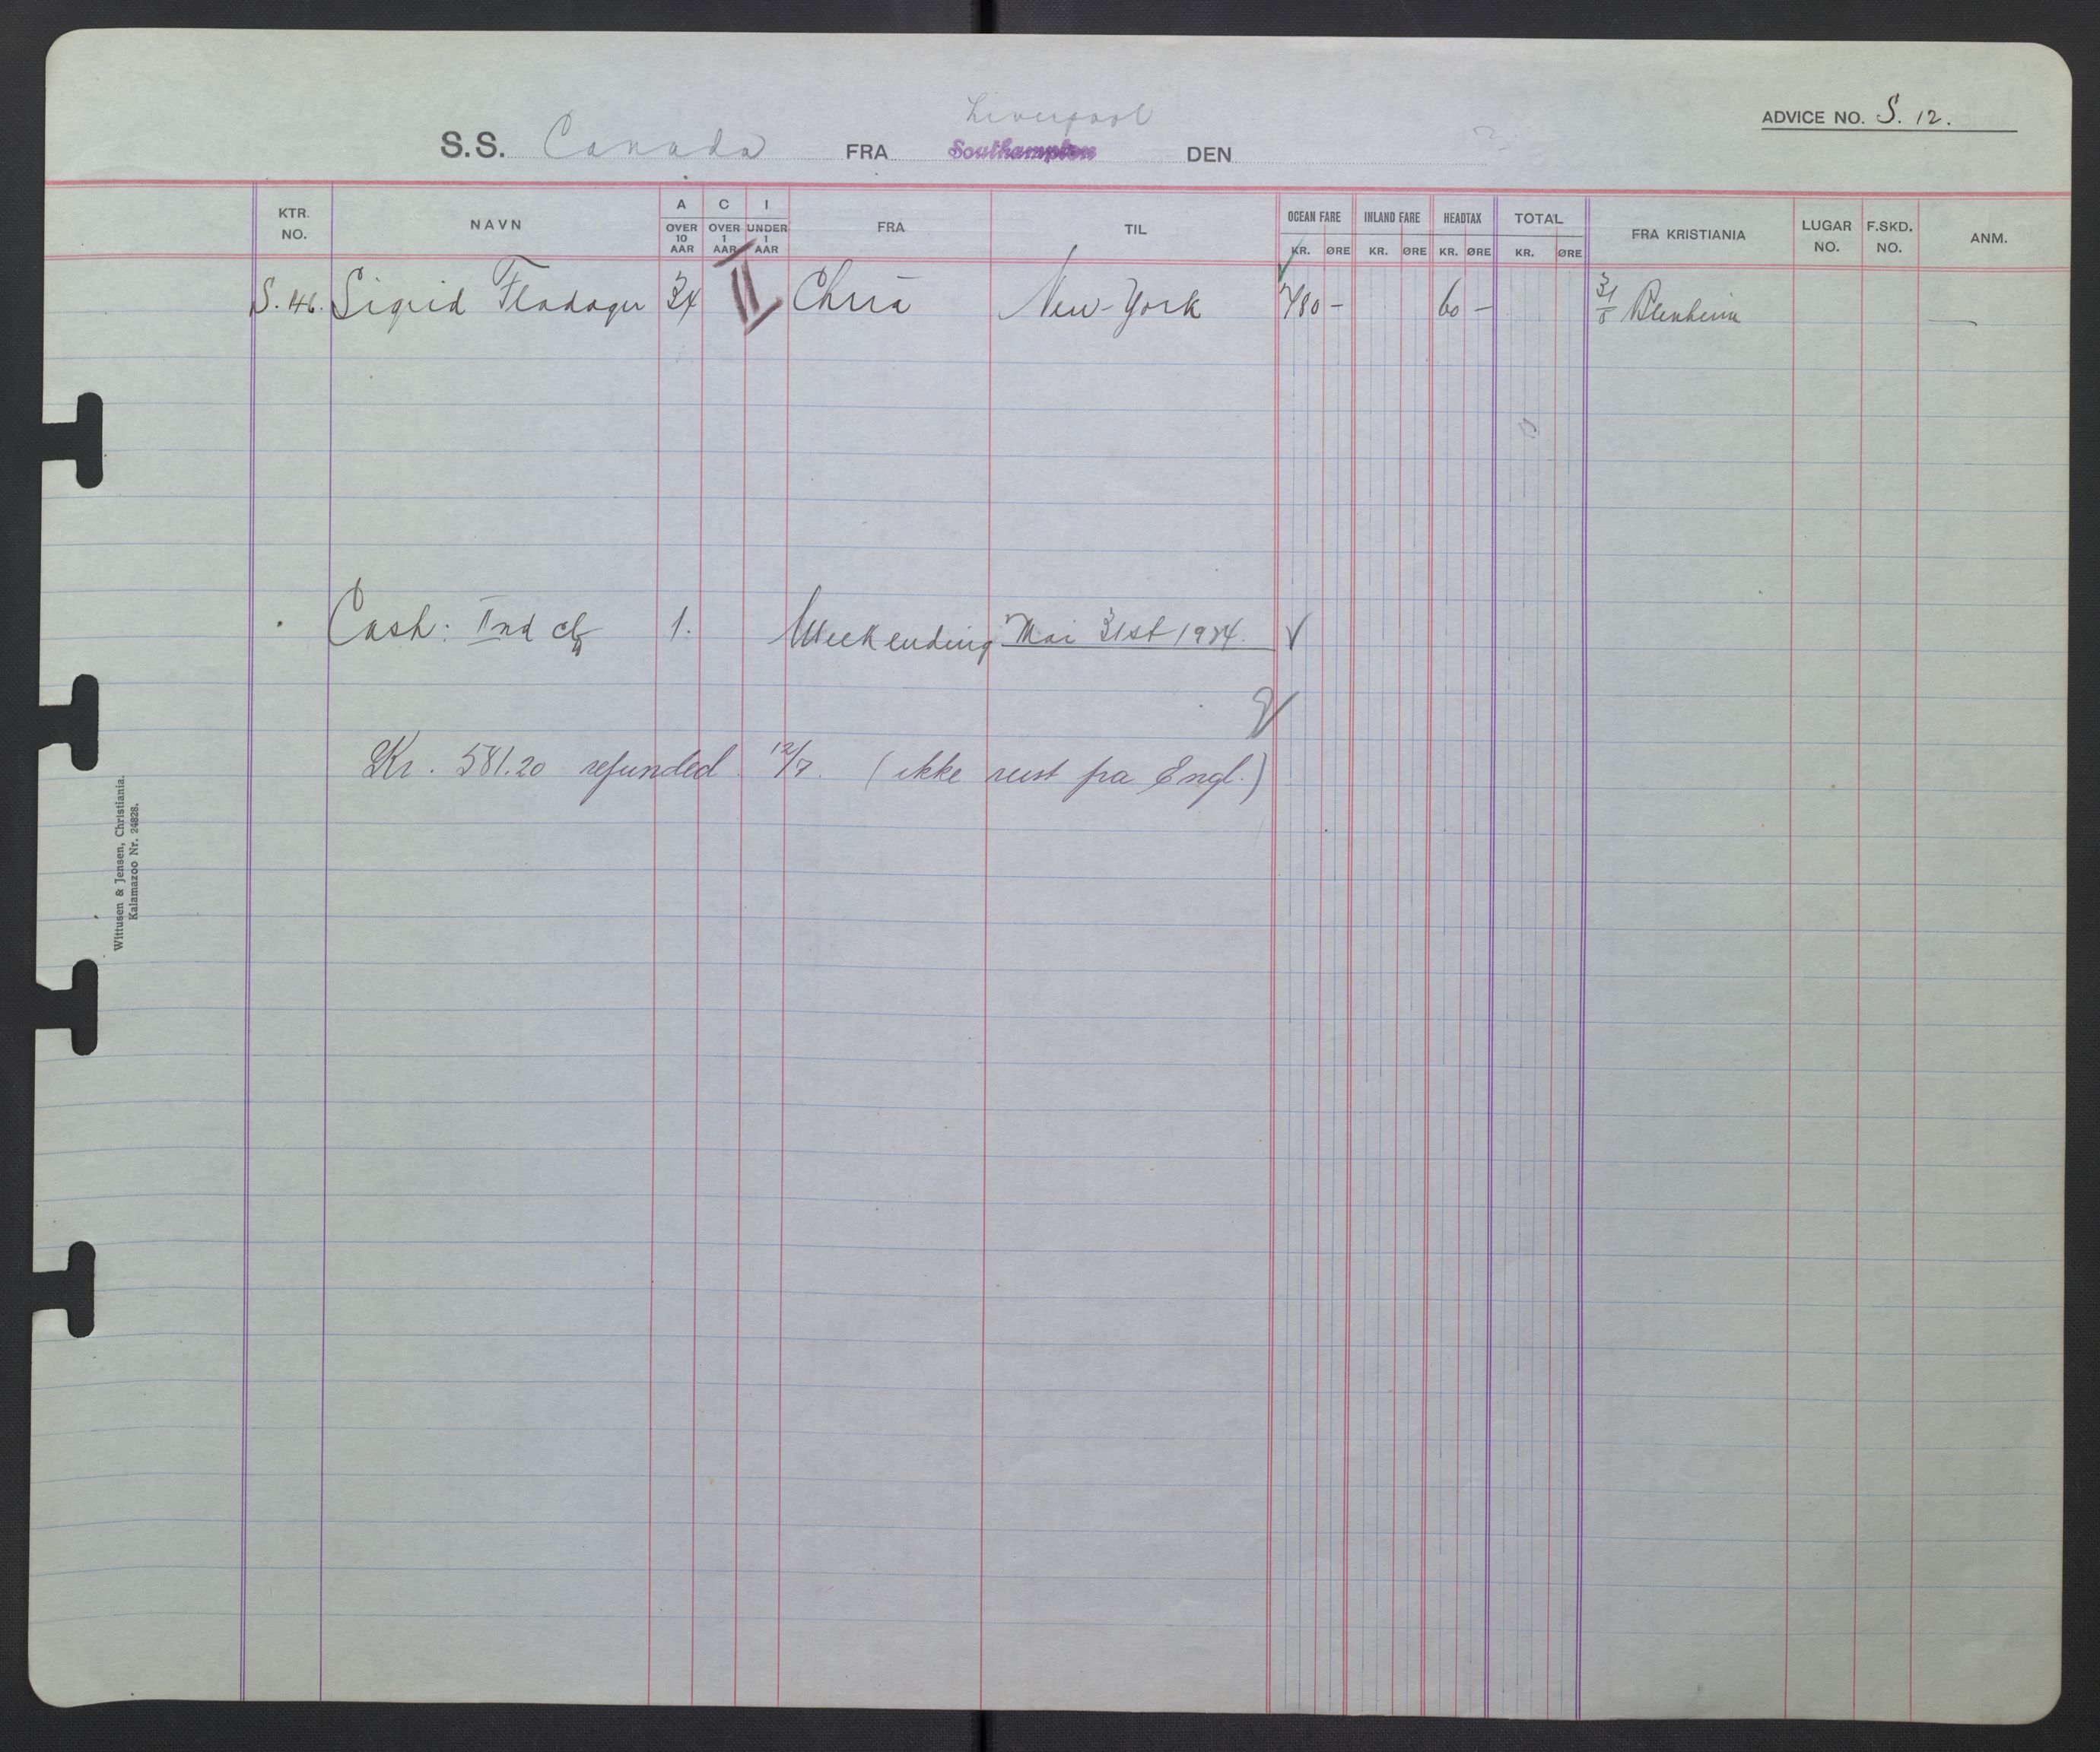 ADVICE NO. S. 12.
Liverpool
S.S. Canada FRA Southampton DEN
KTR. NO. NAVN A OVER 10 AAR C OVER 1 AAR I UNDER 1 AAR FRA TIL OCEAN FARE KR. ØRE INLAND FARE KR. ØRE HEADTAX KR. ØRE TOTAL KR. ØRE FRA KRISTIANIA LUGAR NO. F.SKD. NO. ANM.
S. 46. Sigrid Fladager 34 II Chria New-York 780 - 60 - 31/5 Blenheim —
Cash: IInd cl 1. Weekending Mai 31st 1924. √
Kr. 581.20 refunded 12/7. (ikke reist fra Engl.)
Wittusen & Jensen, Christiania.
Kalamazoo Nr. 24828.